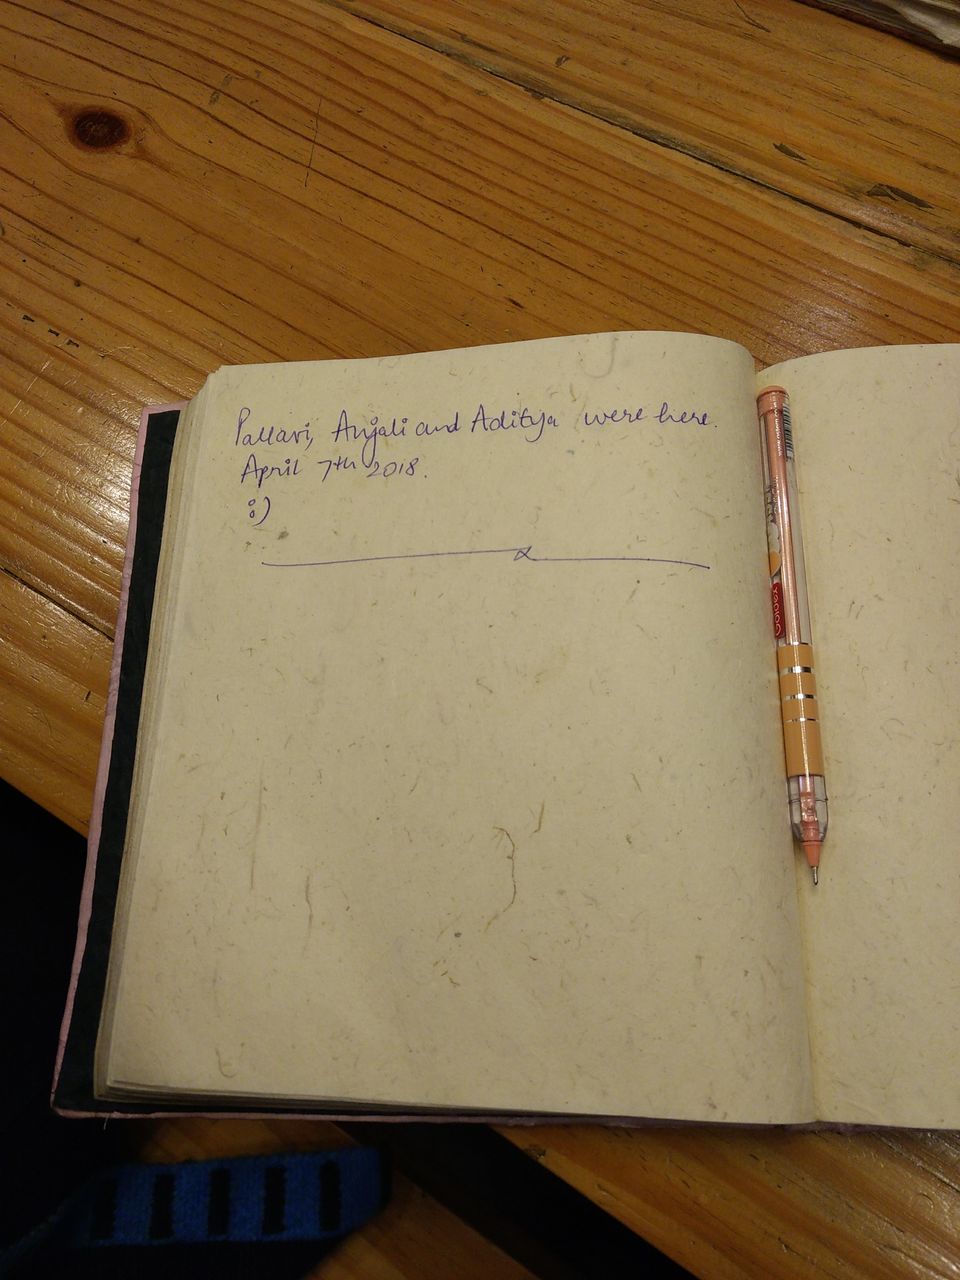 Pallavi, Anjali and Aditya were here.
April 7th 2018.
:)
Goldex